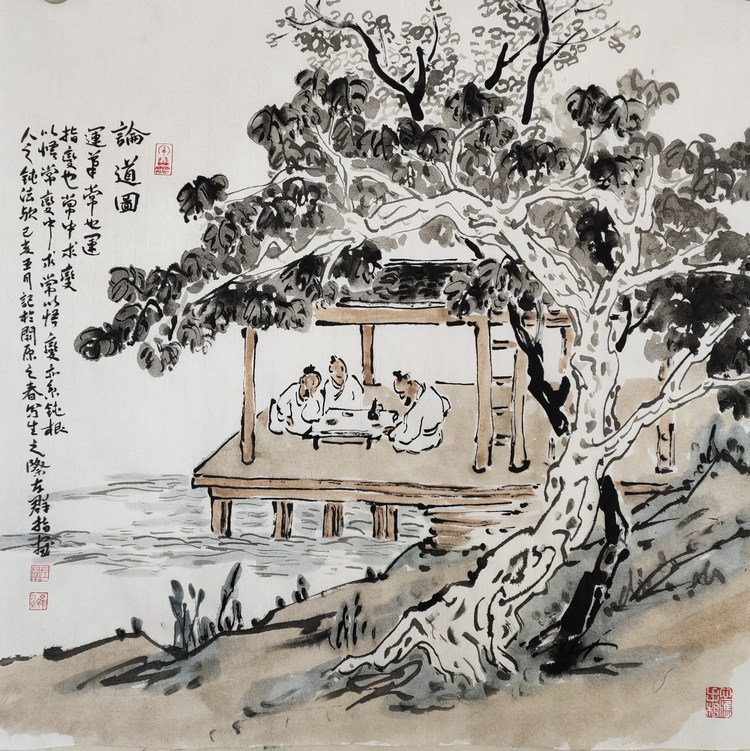 論道圖
運筆常也運
指變也常中求變
以悟常變中求常以悟變亦系鈍根
人之鈍法歟己亥月記於原之春寫生之際左群指